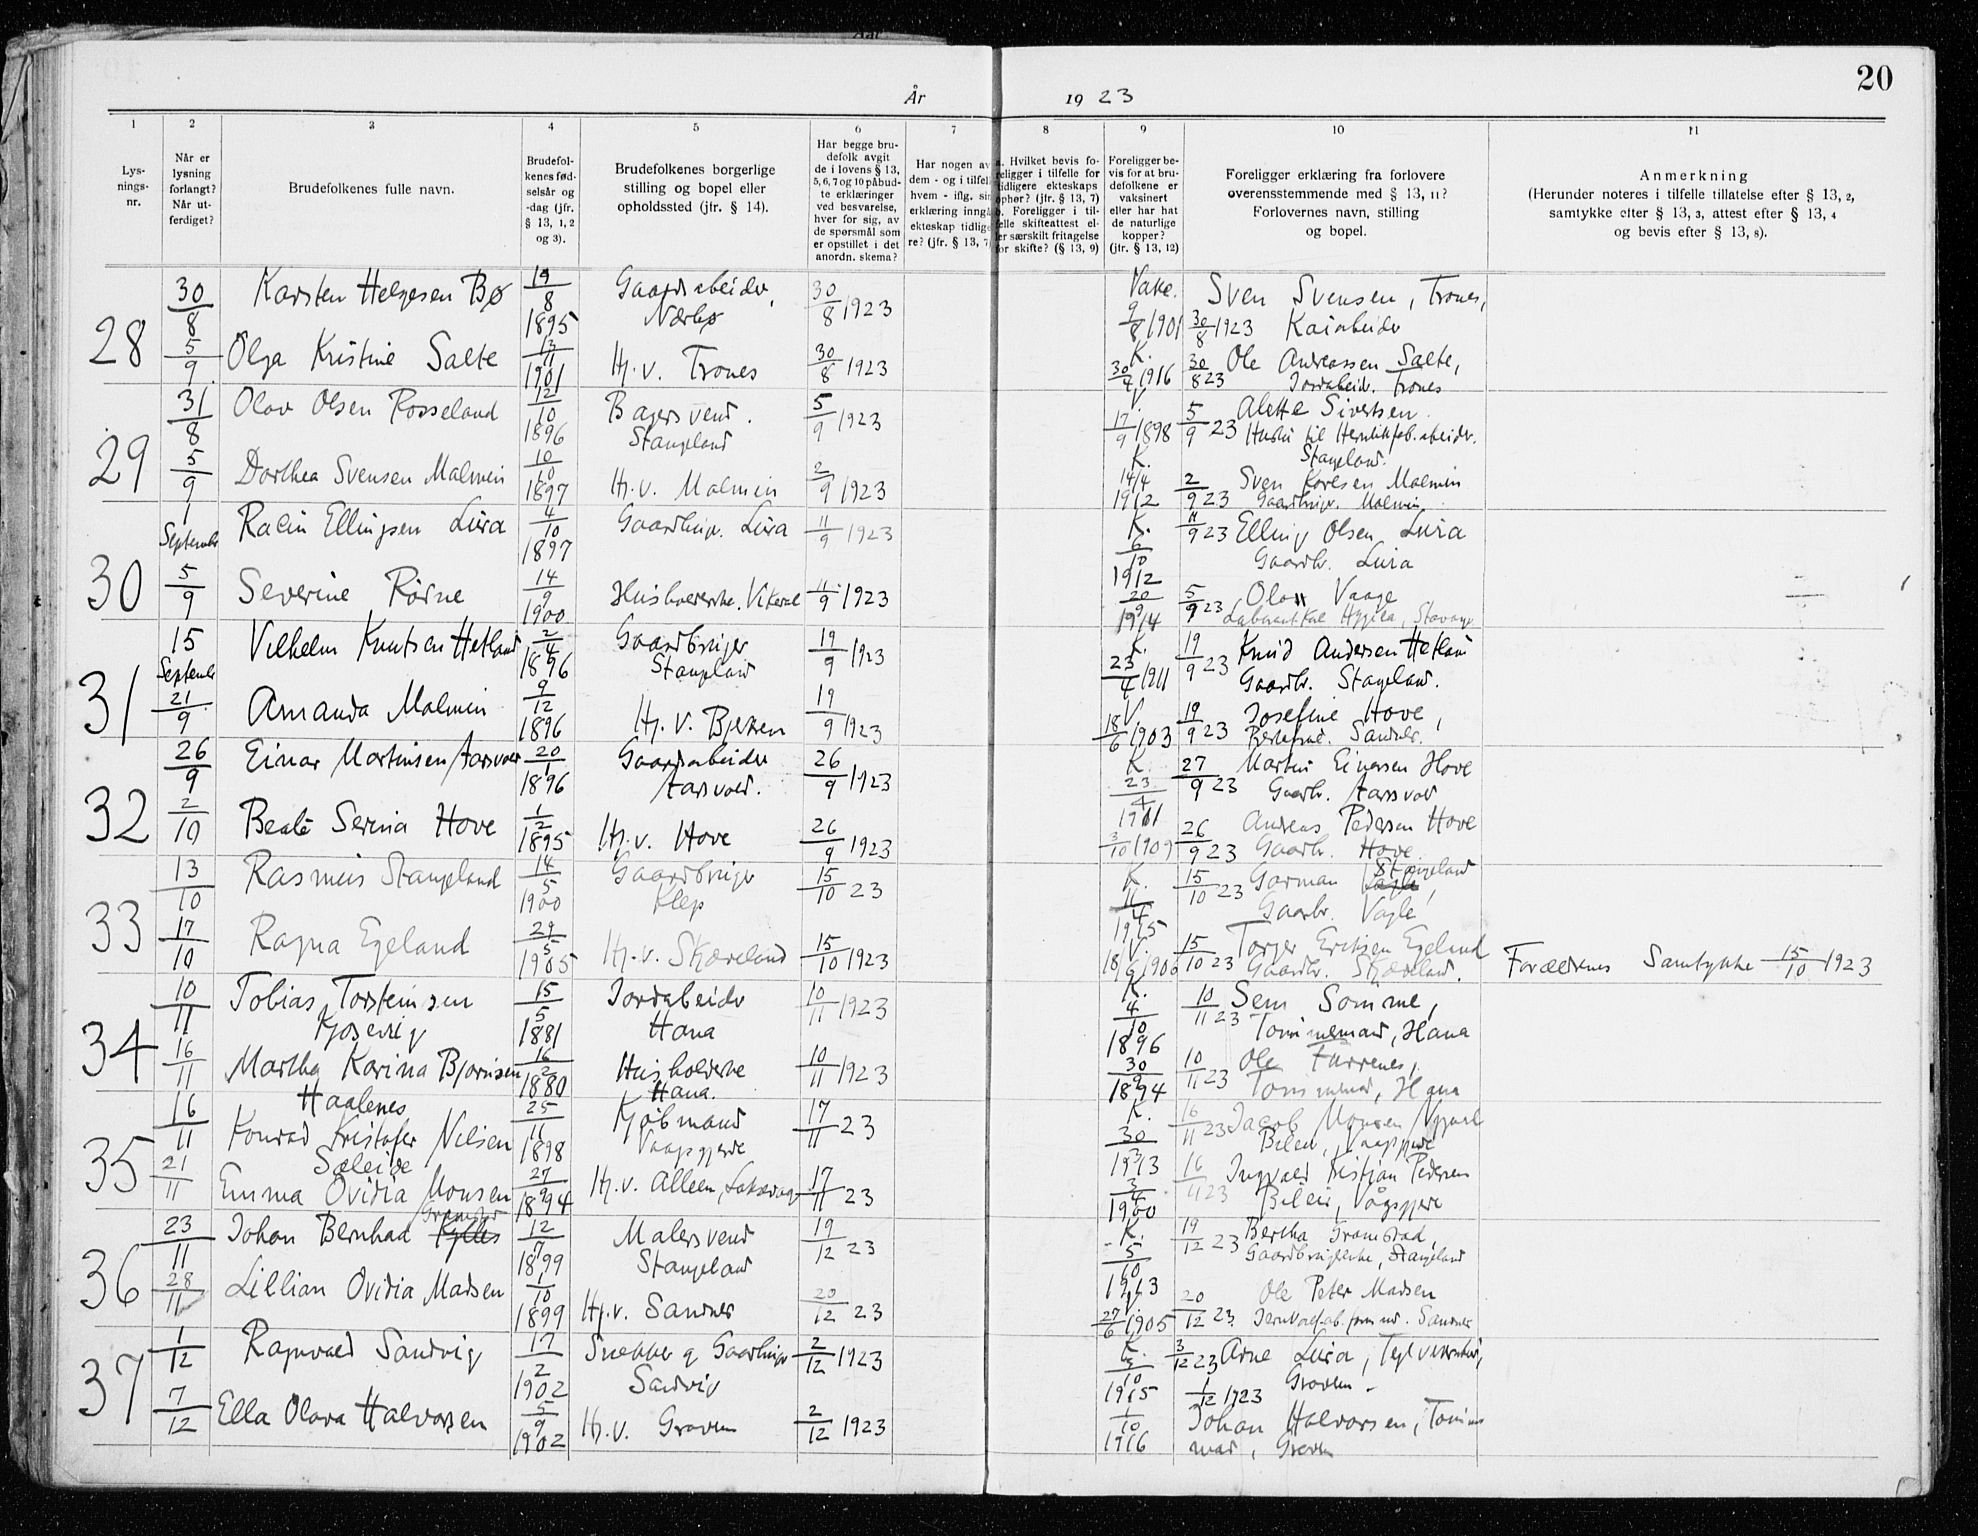 20
År 1923
1 2 3 4 5 6 7 8 9 10 11
Lys-
nings-
nr.
Når er
lysning
forlangt?
Når ut-
ferdiget?
Brudefolkenes fulle navn.
Brudefol-
kenes fød-
selsår og
-dag (jfr.
§ 13, 1, 2
og 3).
Brudefolkenes borgerlige
stilling og bopel eller
opholdssted (jfr. § 14).
Har begge bru-
defolk avgit
de i lovens § 13,
5, 6, 7 og 10 påbud-
te erklæringer
ved besvarelse,
hver for sig, av
de spørsmål som
er opstillet i det
anordn. skema?
Har nogen av
dem - og i tilfelle
hvem - iflg. sin
erklæring inngå
ekteskap tidlige
re? (jfr. § 13, 7
a. Hvilket bevis fo-
religger i tilfelle for
tidligere ekteskaps
ophør? (jfr. § 13, 7)
b. Foreligger i til-
felle skifteattest el-
ler særskilt fritagelse
for skifte? (§ 13, 9)
Foreligger be-
vis for at bru-
defolkene er
vaksinert
eller har hat
de naturlige
kopper?
(jfr. § 13, 12)
Foreligger erklæring fra forlovere
overensstemmende med § 13, 11?
Forlovernes navn, stilling
og bopel.
Anmerkning
(Herunder noteres i tilfelle tillatelse efter § 13, 2,
samtykke efter § 13, 3, attest efter § 13, 4
og bevis efter § 13, 8).
28
30/8 Karsten Helgesen Bø 19/8 1895 Gaardsarbeider, Nærbø 30/8 1923 Vakc. 9/8 1901 30/8 1923 Sven Svensen, Trones, Kaiarbeider
5/9 Olga Kristine Salte 13/11 1901 Hj. v. Trones 30/8 1923 K. 30/4 1916 30/8 23 Ole Andreassen Salte, Jordarbeid. Trones
29
31/8 Olav Olsen Rosseland 12/10 1896 Bagersvend. Stangeland 5/9 1923 V. 17/9 1898 5/9 23 Alette Sivertsen. Hustru til Hermetikfab.arbeider. Stangeland.
5/9 Dorthea Svensen Malmein 10/10 1897 Hj. v. Malmein 2/9 1923 K. 14/4 1912 2/9 23 Sven Malmein Gaardbruger. Malmein
30
1 September Ellingsen Lura 4/10 1897 Gaardbrug. Lura 11/9 1923 K. 6/10 1912 11/9 23 Elling Olsen Lura Gaardbr. Lura
5/9 Severine 14/9 1900 9 1923 20/9 1914 5/9 23 Vaage
31
15 September Vilhelm Knutsen Hetland 2/4 1896 Gaardbruger Stangeland 19/9 1923 K. 23/4 1911 19/9 23 Knud Andersen Hetland Gaardbr. Stangeland.
21/9 Amanda Malmein 9/12 1896 Hj. v. 19/9 1923 V 18/6 1903 19/9 23 Josefine Hove, Sandnes.
32
26/9 Einar Martinsen Aarsvold 20/1 1896 Gaardarbeider Aarsvold. 26/9 1923 K. 23/4 1901 27/9 23 Martin Einarsen Hove Gaardbr. Aarsvold
2/10 Beate Serina Hove 1/2 1895 Hj. v. Hove 26/9 1923 3/10 1909 26/9 23 Andreas Pedersen Hove Gaardbr. Hove
33
13/10 Rasmus Stangeland 14/5 1900 Gaardbruger Klep 15/10 23 K. 11/4 1915 15/10 23 Gorman Stangeland, Gaardbr. Vagle
17/10 Ragna Egeland 29/5 1905 Hj. v. Skjæveland 15/10 1923 V. 18/6 1906 15/10 23 Torger Eriksen Egeland Gaardbr. Skjæveland. Forældrenes Samtykke 15/10 1923
34
10/11 Tobias Torsteinsen Gjosevig 15/5 1881 Jordarbeider Hana 10/11 1923 K. 4/10 1896 10/11 23 Sem Somme, Tømmermand, Hana
16/11 Martha Karina Bjørnsen Haalenes 16/2 1880 Husholderske Hana. 10/11 1923 30/9 1894 10/11 23 Ole Furrenes, Tømmermand, Hana
35
16/11 Konrad Kristofer Nilsen Sæleide 25/11 1898 Kjøbmand Vaagsgjerde 17/11 23 K. 30 1913 16/11 23 Jacob Monsen Vaagsgjerde
21/11 Emma Ovidia Monsen 27/9 1894 Hj. v. Alleen, Laksevaag 17/11 23 3/4 1900 16/11 23 Ingvald Kristjan Pedersen Vågsgjerde
36
23/11 Johan Bernhad Gramstad 12/7 1899 Malersvend Stangeland 19/12 23 K. 5/10 1913 19/12 23 Bertha Gramstad, Gaardbrugerske, Stangeland
28/11 Lillian Ovidia Madsen 1/10 1899 Hj. v. Sandnes 20/12 23 V. 27/6 1905 20/12 23 Ole Peter Madsen Sandnes
37
1/12 Ragnvald Sandvig 17/2 1902 Snekker og Gaardbruger Sandvig 2/12 1923 K. 3/10 1915 3/12 23 Arne Lura, Graven.
7/12 Ella Olava Halvorsen 5/9 1902 Hj. v. Graven 2/12 1923 1/10 1916 1/12 1923 Johan Halvorsen, Tømmermand, Graven